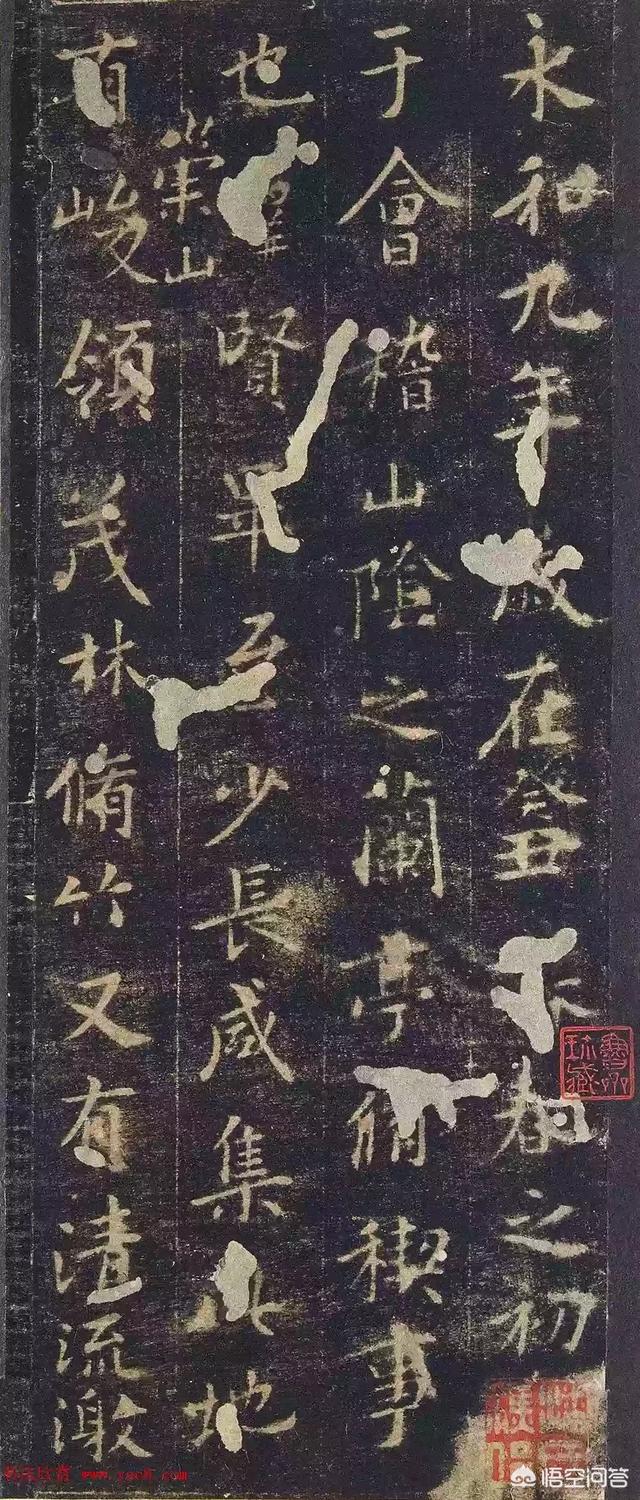 永和九年歲在癸丑春之初
于會稽山陰之蘭亭脩稧事
也羣賢畢至少長咸集此地
崇山
有峻領茂林脩竹又有清流激
www.yac8.com
悟空问答